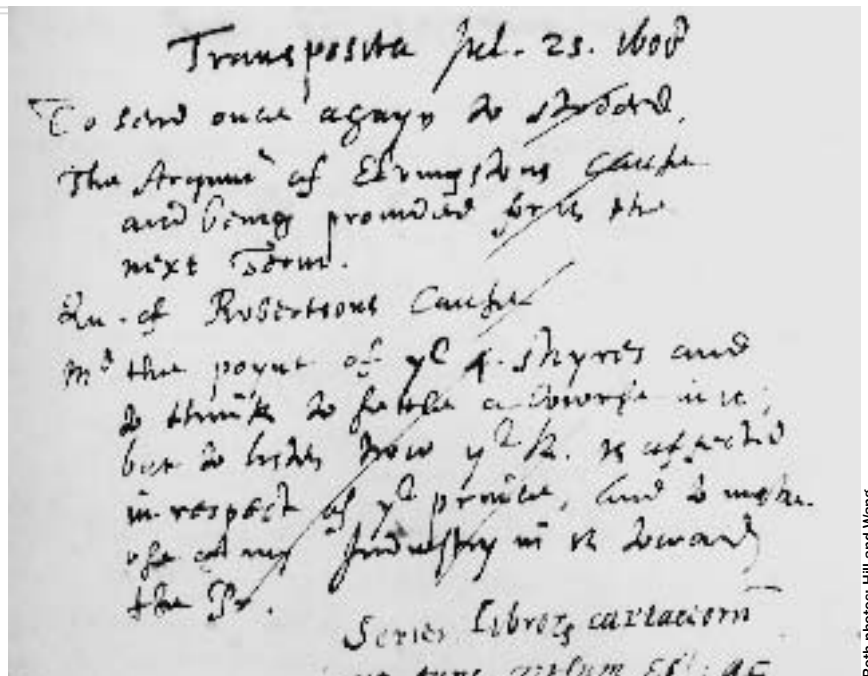 Transposita Jul. 25. 1608
To send once agayn to
The Argumt of Edvingstons Cause
and being provided for it the
next Term.
Qu. of Robertsons Cause
md the poynt of ye 4. shyres and
to think to settle a cowrse in it;
but to listen how ye K. is affected
in respect of ye prince, and to make
use of my Industry in it towards
the Pr.
Series Libror cartaceorũ
Both photos: Hill and Wang